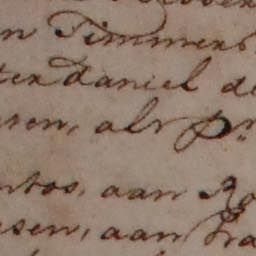 n Timmers
ter daniel de
ren, als pr
ntos, aan Ro
sen, aan